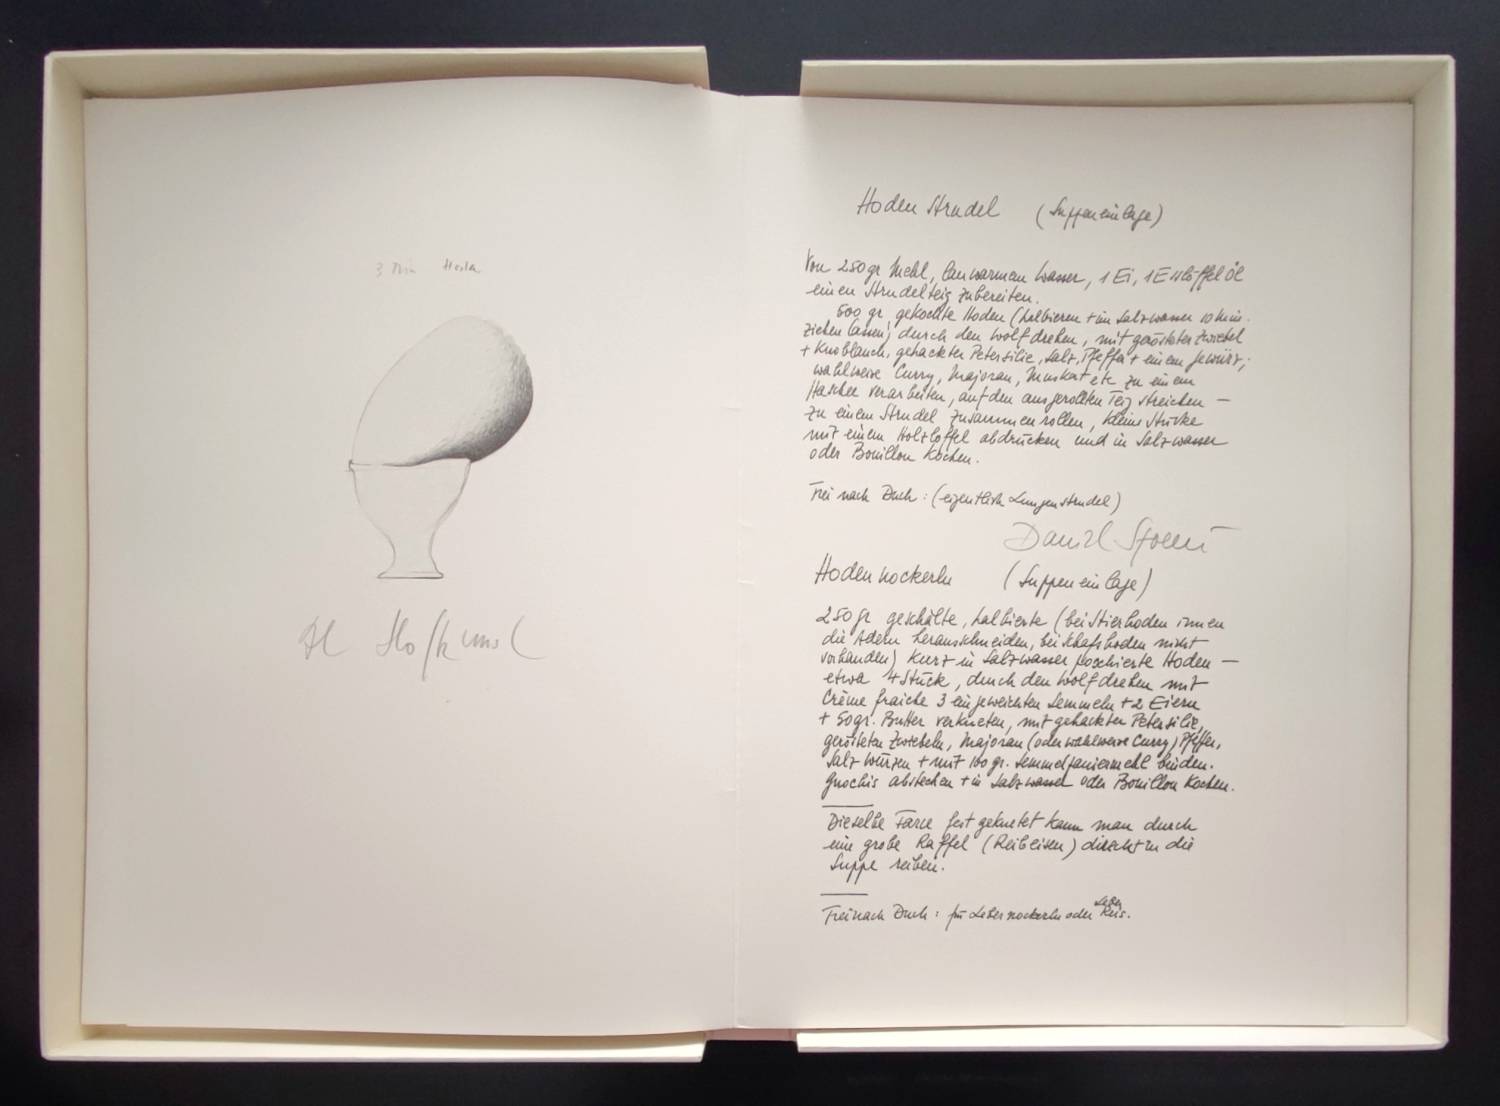 3 Min
Hoden Strudel (Suppeneinlage)
Von 250 gr Mehl, lauwarmem Wasser, 1 Ei, 1 Esslöffel Öl
einen Strudelteig zubereiten.
500 gr. gekochte Hoden (halbieren + im Salzwasser 10 Min.
ziehen lassen) durch den Wolf drehen, mit gerösteter Zwiebel
+ Knoblauch, gehackter Petersilie, Salz, Pfeffer + einem Gewürz;
wahlweise Curry, Majoran, Muskat etc zu einem
Haschee verarbeiten, auf den ausgerollten Teig streichen –
zu einem Strudel zusammenrollen, kleine Stücke
mit einem Holzlöffel abdrücken und in Salzwasser
oder Bouillon kochen.
Frei nach Duch: (eigentlich Lungenstrudel)
Daniel Spoerri
Hodennockerln (Suppeneinlage)
250 gr geschälte, halbierte (bei Stierhoden innen
die Adern herausschneiden, bei Schafshoden nicht
vorhanden) kurz in Salzwasser pochierte Hoden –
etwa 4 Stück, durch den Wolf drehen mit
Crème fraiche 3 eingeweichten Semmeln + 2 Eiern
+ 50 gr. Butter verkneten, mit gehackter Petersilie,
gerösteten Zwiebeln, Majoran (oder wahlweise Curry) Pfeffer,
Salz würzen + mit 100 gr. Semmelpaniermehl binden.
Gnochis abstechen + in Salzwasser oder Bouillon kochen.
Dieselbe Farce fest geknetet kann man durch
eine grobe Raffel (Reibeisen) direkt in die
Suppe reiben.
Frei nach Duch: für Lebernockerln oder Leber
Reis.